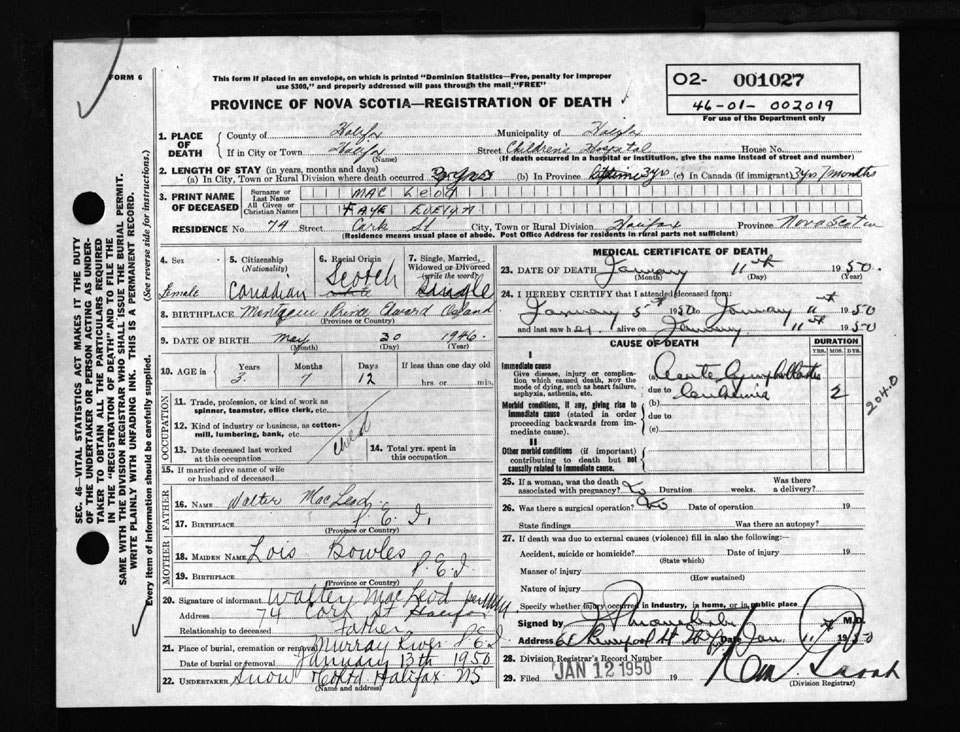 FORM 6
This form if placed in an envelope, on which is printed "Dominion Statistics—Free, penalty for improper
use $300," and properly addressed will pass through the mail "FREE"
PROVINCE OF NOVA SCOTIA—REGISTRATION OF DEATH
O2- 001027
46-01- 002019
For use of the Department only
1. PLACE OF DEATH
County of Halifax Municipality of Halifax
If in City or Town Halifax Street Children's Hospital House No.
(Name) (If death occurred in a hospital or institution, give the name instead of street and number)
2. LENGTH OF STAY (in years, months and days)
(a) In City, Town or Rural Division where death occurred (b) In Province 3yrs (c) In Canada (if immigrant) 3yrs 7 months
3. PRINT NAME OF DECEASED
Surname or Last Name MAC LEOD
All Given or Christian Names FAYE EVELYN
RESIDENCE No. 74 Street Cork St City, Town or Rural Division Halifax Province Nova Scotia
(Residence means usual place of abode. Post Office Address for residents in rural parts not sufficient)
4. Sex Female
5. Citizenship (Nationality) Canadian
6. Racial Origin Scotch
7. Single, Married, Widowed or Divorced (write the word) Single
8. BIRTHPLACE Prince Edward Island
(Province or Country)
9. DATE OF BIRTH May 30 1946
(Month) (Day) (Year)
10. AGE in Years Months Days If less than one day old
3 7 12 hrs. or min.
OCCUPATION
11. Trade, profession, or kind of work as
spinner, teamster, office clerk, etc.
12. Kind of industry or business, as cotton-
mill, lumbering, bank, etc.
child
13. Date deceased last worked
at this occupation
14. Total yrs. spent in
this occupation
15. If married give name of wife
or husband of deceased
FATHER
16. Name Walter MacLeod
17. Birthplace P. E. I.
(Province or Country)
MOTHER
18. MAIDEN NAME Lois Bowles
19. BIRTHPLACE P.E.I
(Province or Country)
20. Signature of informant Walter MacLeod
Address 74 Cork St Halifax
Relationship to deceased Father
21. Place of burial, cremation or removal Murray River P.E.I
Date of burial or removal January 13th 1950
22. UNDERTAKER Snow & Co Ltd. Halifax NS
(Name and address)
MEDICAL CERTIFICATE OF DEATH
23. DATE OF DEATH January 11th 1950.
(Month) (Day) (Year)
24. I HEREBY CERTIFY that I attended deceased from:
January 5th 1950 to January 11th 1950
and last saw her alive on January 11th 1950
CAUSE OF DEATH
DURATION
YRS. MOS. DYS.
I
Immediate cause
Give disease, injury or complication which caused death, NOT the mode of dying, such as heart failure, asphyxia, asthenia, etc.
(a) Acute Lymphoblastic
due to Leukaemia 2
Morbid conditions, if any, giving rise to immediate cause (stated in order proceeding backwards from immediate cause).
(b)
due to
(c)
II
Other morbid conditions (if important) contributing to death but not causally related to immediate cause.
2040
25. If a woman, was the death
associated with pregnancy? Duration weeks. Was there
a delivery?
26. Was there a surgical operation? No Date of operation 19
State findings Was there an autopsy?
27. If death was due to external causes (violence) fill in also the following:
Accident, suicide or homicide? Date of injury 19
(State which)
Manner of injury
(How sustained)
Nature of injury
Specify whether injury occurred in industry, in home, or in public place
Signed by M.D.
Address Date Jan. 11th 1950
28. Division Registrar's Record Number
29. Filed JAN 12 1950 19
(Division Registrar)
SEC. 46—VITAL STATISTICS ACT MAKES IT THE DUTY
OF THE UNDERTAKER OR PERSON ACTING AS UNDER-
TAKER TO OBTAIN ALL THE PARTICULARS REQUIRED
IN THE "REGISTRATION OF DEATH" AND TO FILE THE
SAME WITH THE DIVISION REGISTRAR WHO SHALL ISSUE THE BURIAL PERMIT.
WRITE PLAINLY WITH UNFADING INK. THIS IS A PERMANENT RECORD.
Every item of information should be carefully supplied. (See reverse side for instructions.)